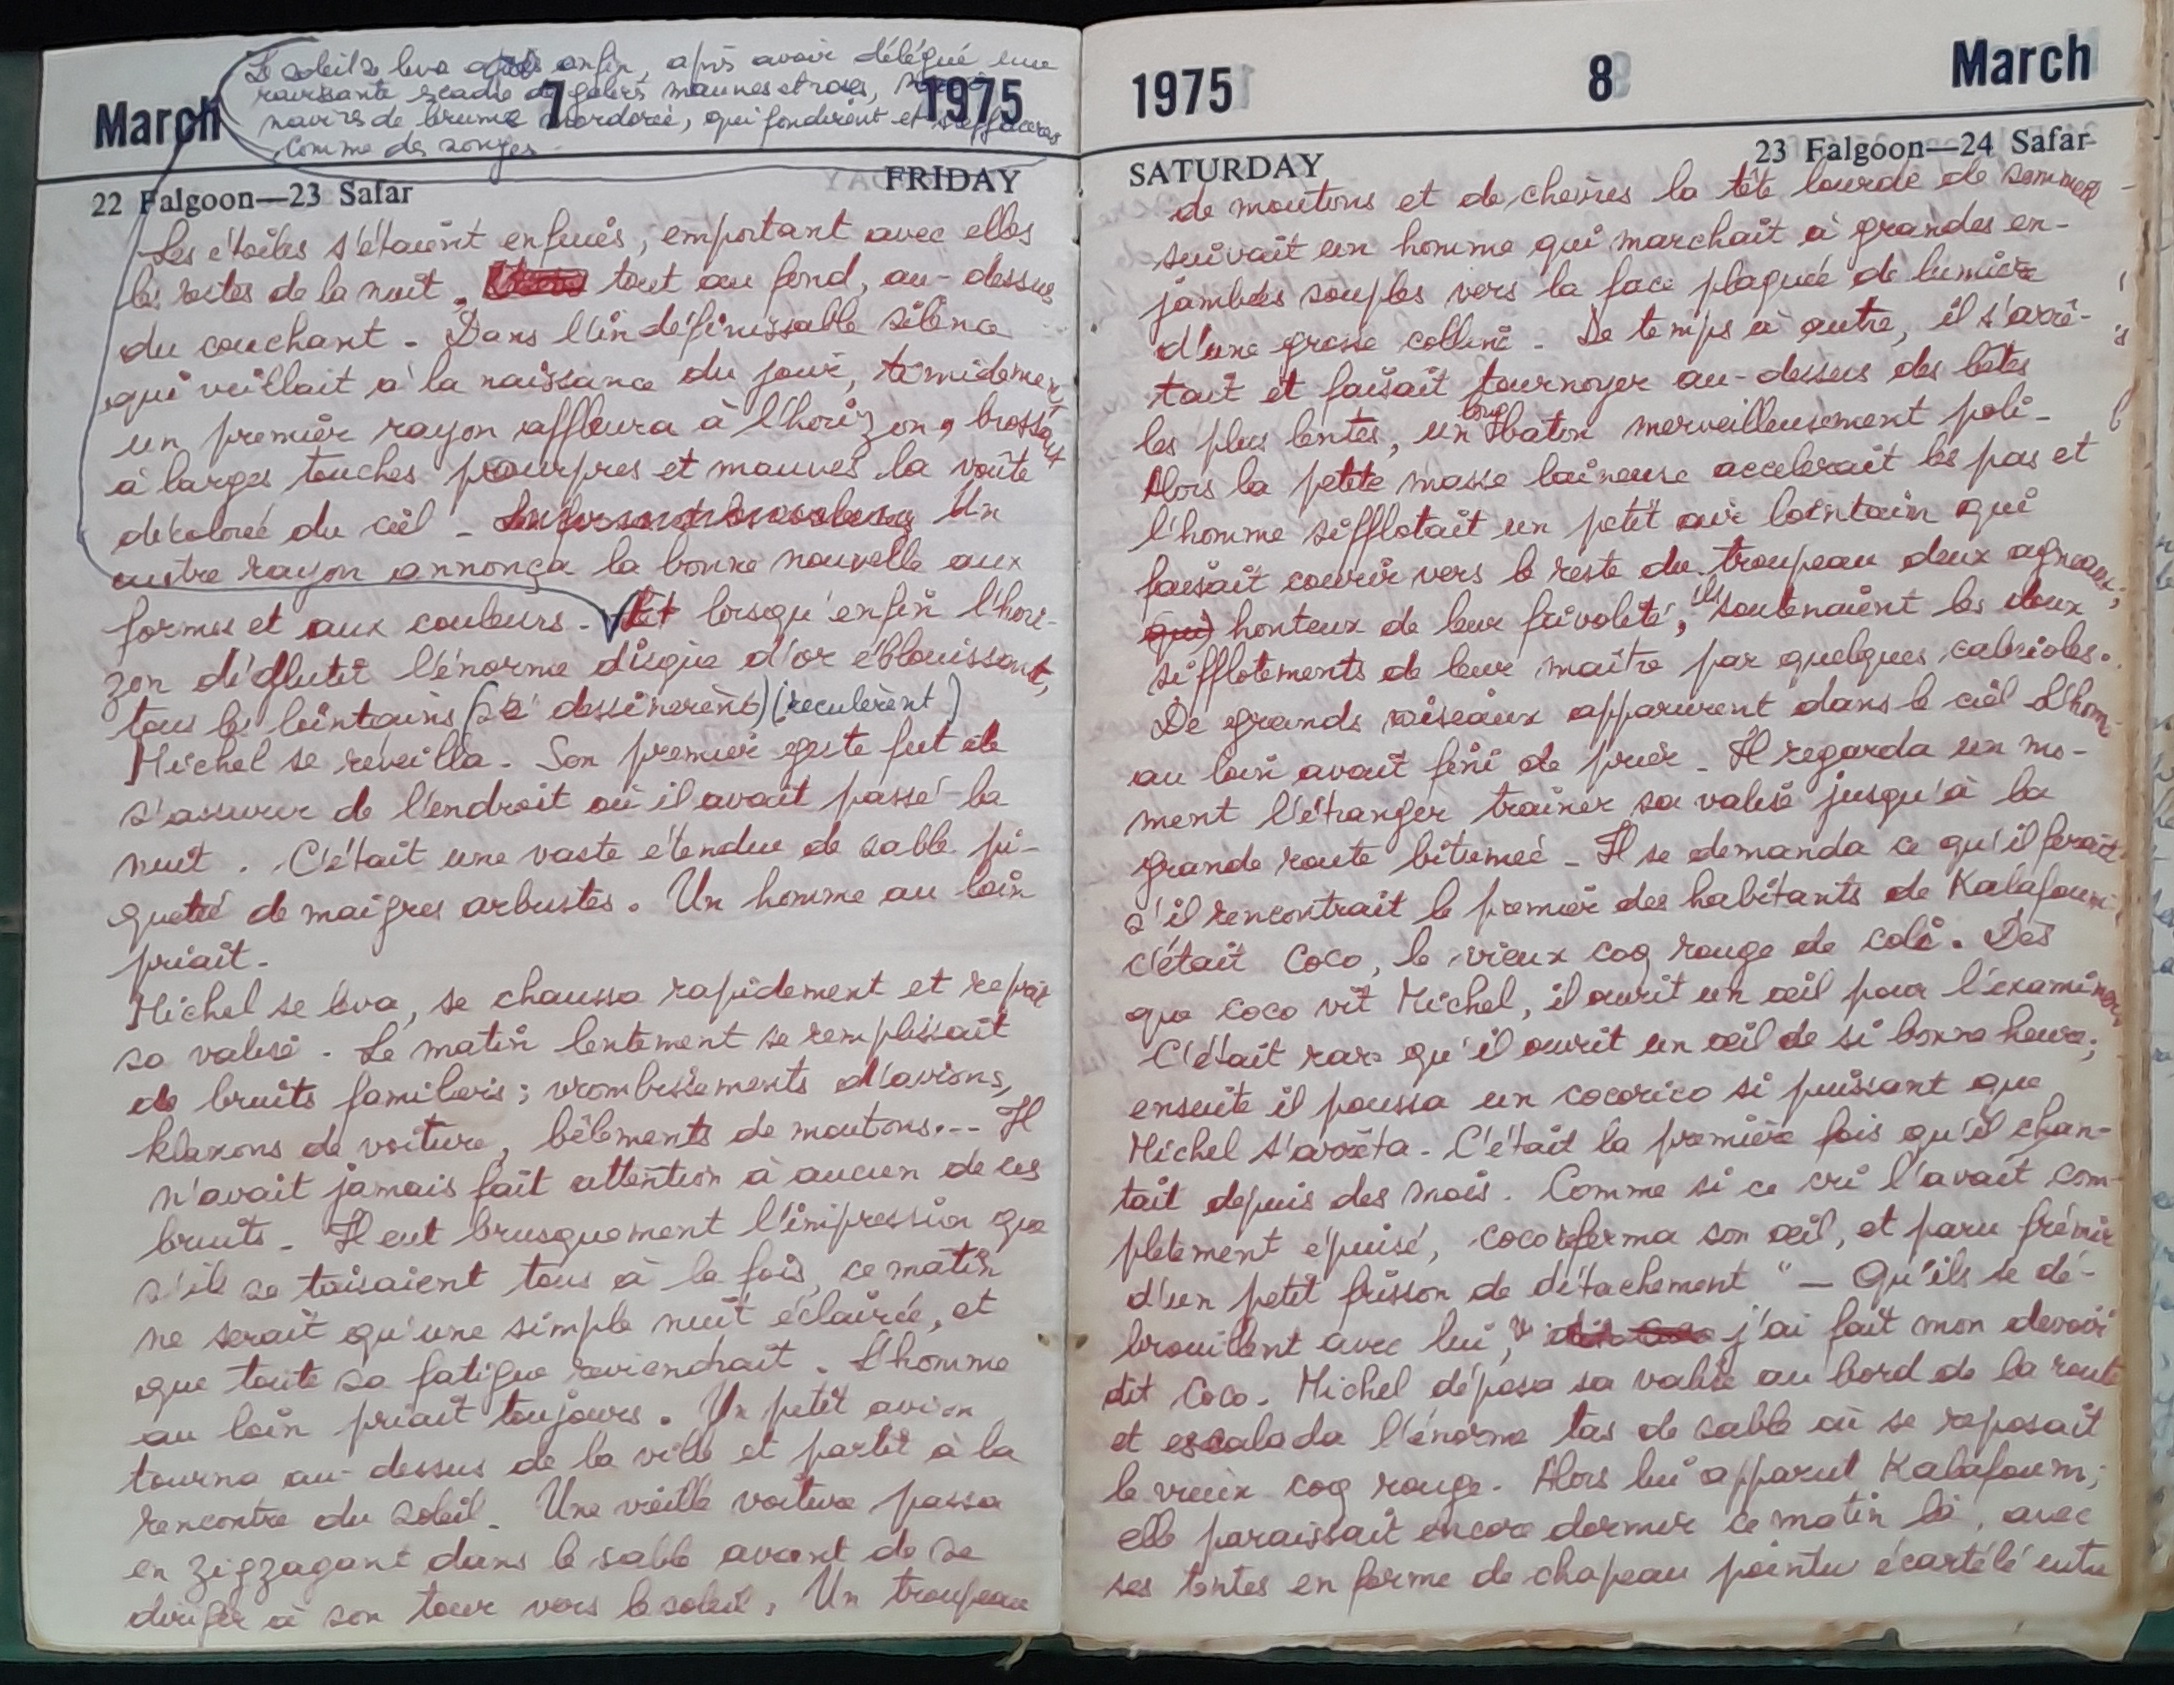 Le soleil se leva enfin, après avoir délégué une
ravissante escadre de galères mauves et roses,
navires de brume mordorée, qui fondirent et s'effacèrent
comme des songes.
March 7 1975
22 Falgoon—23 Safar FRIDAY
Les étoiles s'étaient enfuies, emportant avec elles
les restes de la nuit, tout au fond, au-dessus
du couchant. Dans l'indéfinissable silence
qui veillait à la naissance du jour, timidement
un premier rayon affleura à l'horizon, brossant
à larges touches pourpres et mauves la voûte
décolorée du ciel - Un
autre rayon annonça la bonne nouvelle aux
formes et aux couleurs. Et lorsqu'enfin l'hori-
zon déglutit l'énorme disque d'or éblouissant,
tous les lointains (se dessinèrent) (reculèrent)
Michel se réveilla. Son premier geste fut de
s'assurer de l'endroit où il avait passé la
nuit. C'était une vaste étendue de sable pi-
queté de maigres arbustes. Un homme au loin
priait.
Michel se leva, se chaussa rapidement et reprit
sa valise. Le matin lentement se remplissait
de bruits familiers; vrombissements d'avions,
klaxons de voiture, bêlements de moutons... Il
n'avait jamais fait attention à aucun de ces
bruits. Il eut brusquement l'impression que
s'ils se taisaient tous à la fois, ce matin
ne serait qu'une simple nuit éclairée, et
que toute sa fatigue reviendrait. L'homme
au loin priait toujours. Un petit avion
tourna au-dessus de la ville et partit à la
rencontre du soleil. Une vieille voiture passa
en zigzagant dans le sable avant de se
diriger à son tour vers le soleil. Un troupeau
1975 8 March
SATURDAY 23 Falgoon—24 Safar
de moutons et de chèvres la tête lourde de sommeil
suivait un homme qui marchait à grandes en-
jambées souples vers la face plaquée de lumière
d'une grosse colline. De temps à autre, il s'arrê-
tait et faisait tournoyer au-dessus des bêtes
les plus lentes, un long bâton merveilleusement poli.
Alors la petite masse laineuse accelerait les pas et
l'homme sifflotait un petit air lointain qui
faisait courir vers le reste du troupeau deux agneaux;
qui honteux de leur frivolité, ils soutenaient les doux
sifflotements de leur maître par quelques cabrioles.
De grands oiseaux apparurent dans le ciel L'hom
au loin avait fini de prier. Il regarda un mo-
ment l'étranger trainer sa valise jusqu'à la
grande route bitumée - Il se demanda ce qu'il ferait
s'il rencontrait le premier des habitants de Kalafoum
c'était Coco, le vieux coq rouge de Des
que Coco vit Michel, il ouvrit un œil pour l'examiner
C'était rare qu'il ouvrit un œil de si bonne heure;
ensuite il poussa un cocorico si puissant que
Michel s'arrêta. C'était la première fois qu'il chan-
tait depuis des mois. Comme si ce cri l'avait com-
pletement épuisé, coco referma son œil, et paru frémir
d'un petit frisson de détachement "- Qu'ils se dé-
brouillent avec lui, j'ai fait mon devoir
dit Coco. Michel déposa sa valise au bord de la route
et escalada l'énorme tas de sable où se reposait
le vieux coq rouge. Alors lui apparut Kalafoum;
elle paraissait encore dormir ce matin là, avec
ses tentes en forme de chapeau pointu écartelé entre